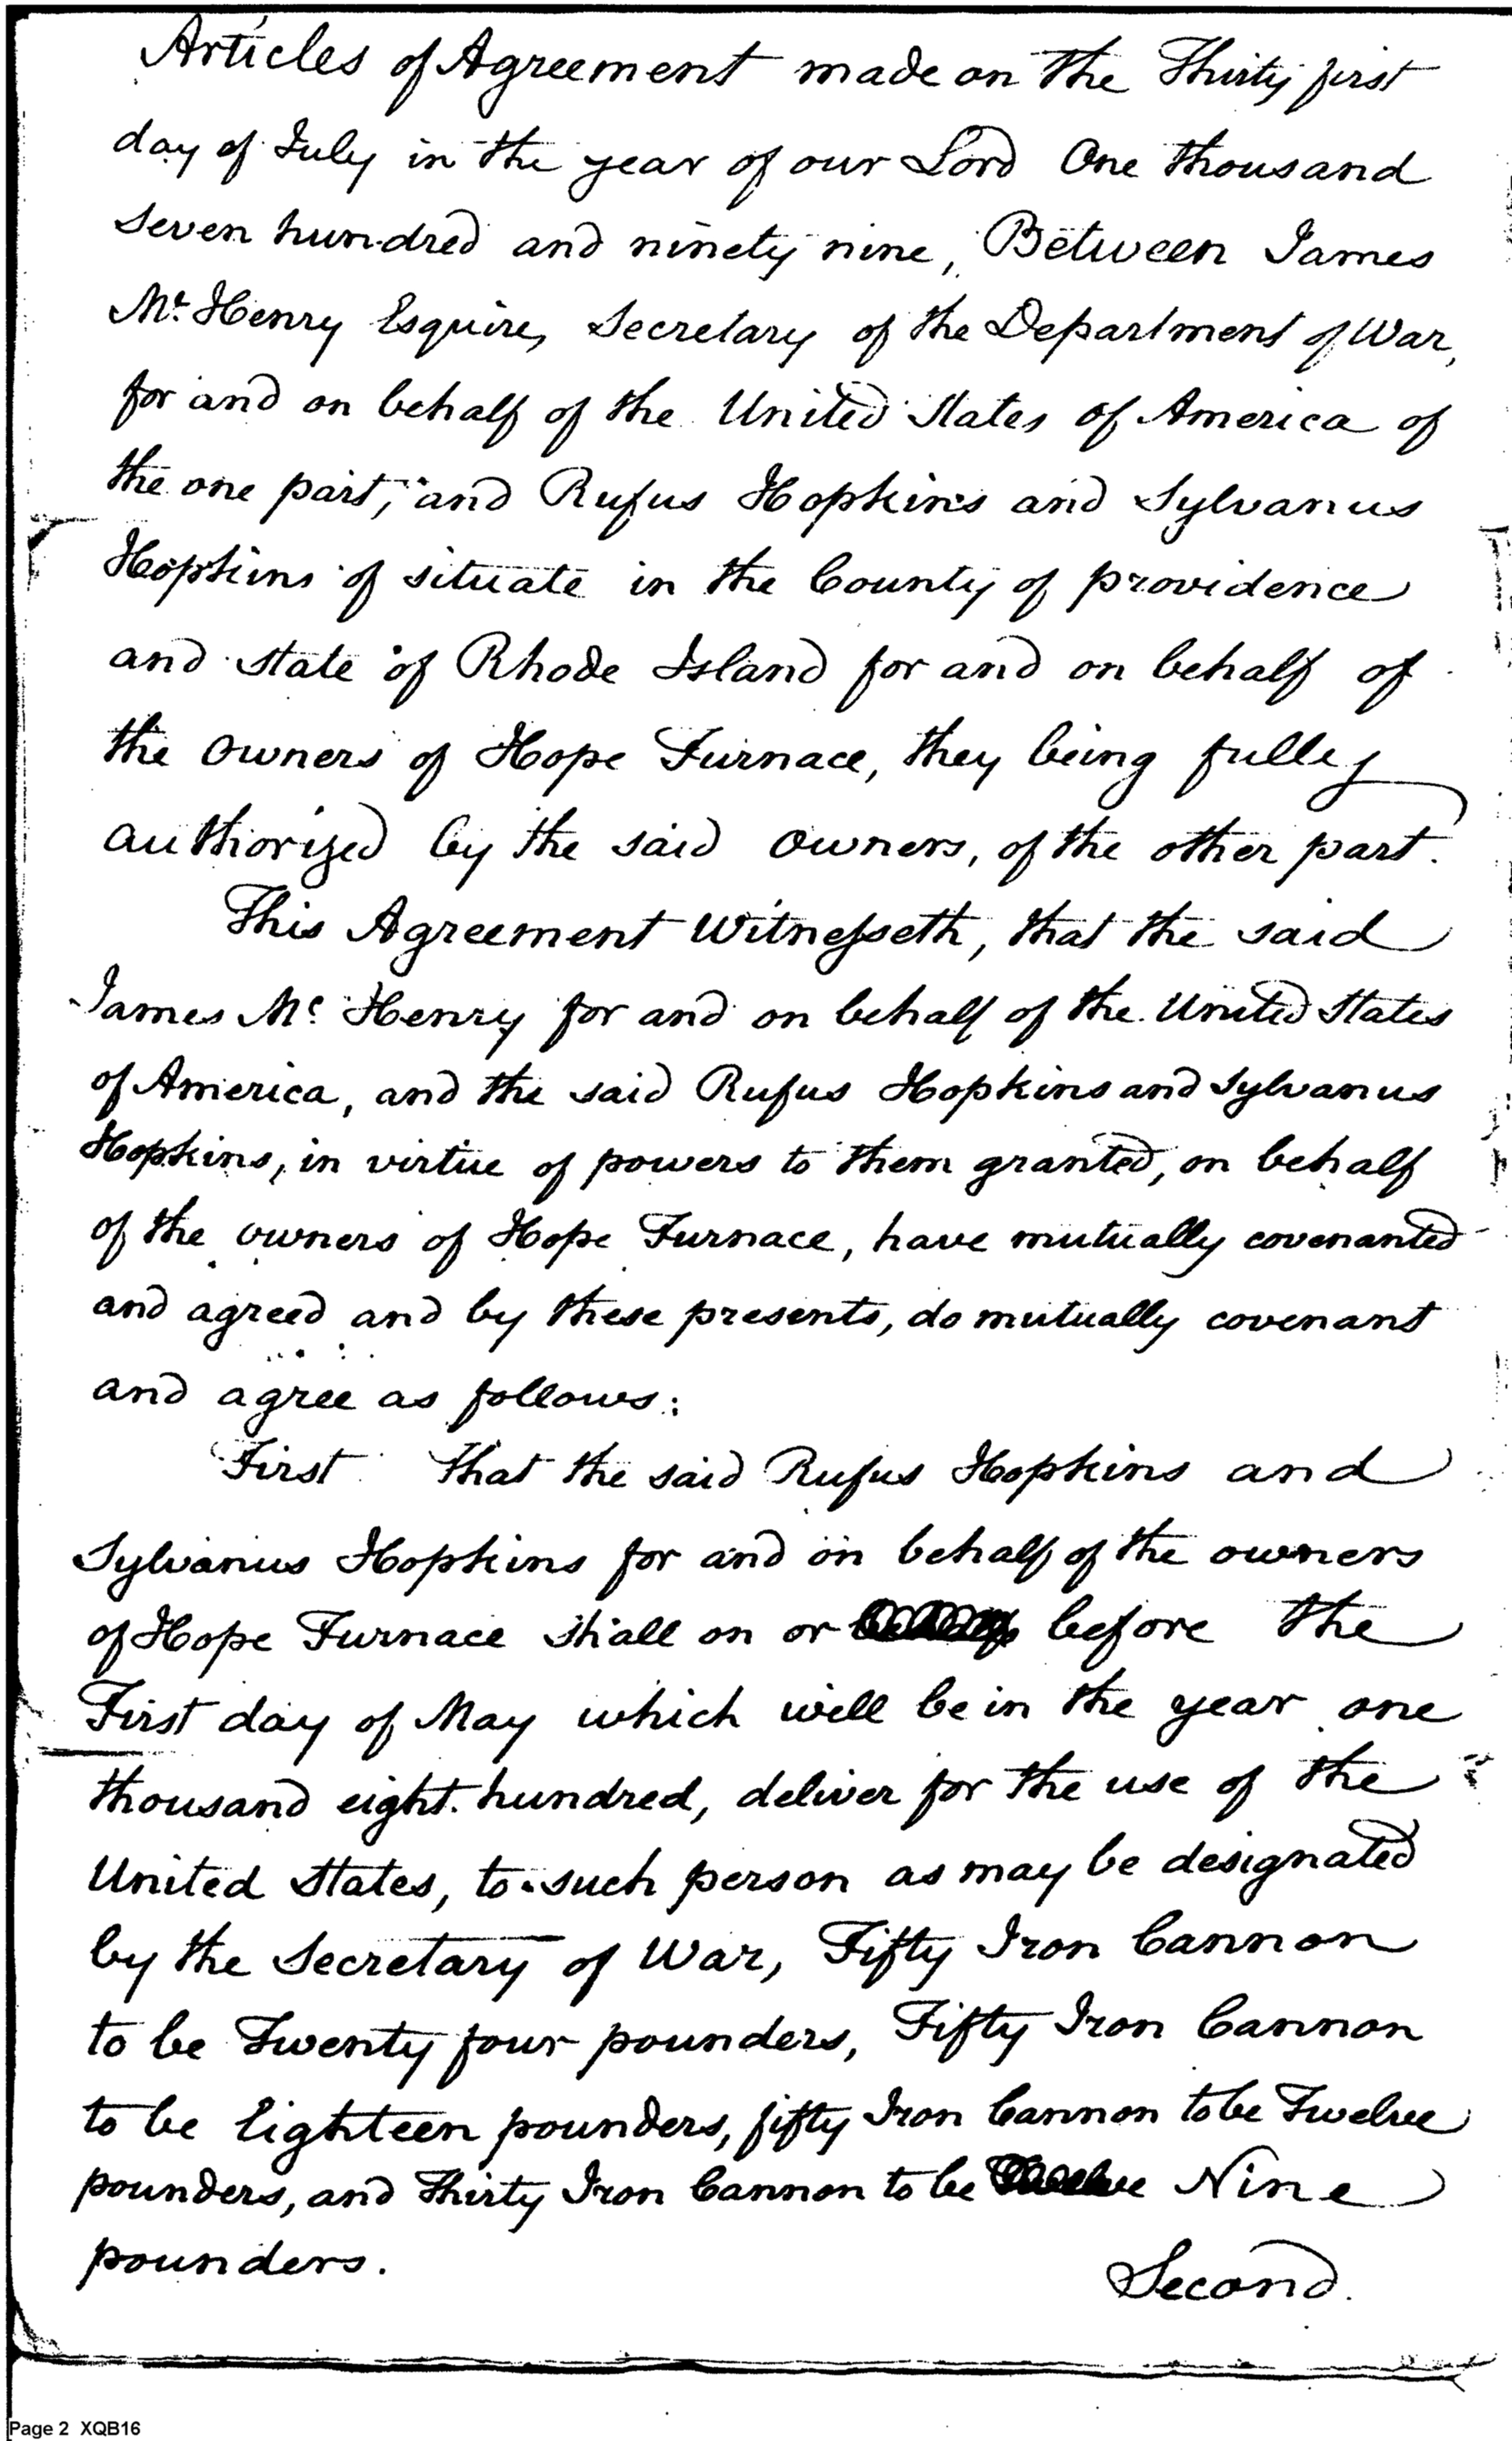 Articles of Agreement made on the Thirty first
day of July in the year of our Lord One thousand
Seven hundred and ninety nine, Between James
Mc. Henry Esquire, Secretary of the Department of War,
for and on behalf of the United States of America of
the one part, and Rufus Hopkins and Sylvanus
Hopkins of situate in the County of providence
and state of Rhode Island for and on behalf of
the owners of Hope Furnace, they being fully
authorized by the said owners, of the other part.
This Agreement Witnesseth, that the said
James Mc. Henry for and on behalf of the United States
of America, and the said Rufus Hopkins and Sylvanus
Hopkins, in virtue of powers to them granted, on behalf
of the owners of Hope Furnace, have mutually covenanted
and agreed and by these presents, do mutually covenant
and agree as follows:
First. That the said Rufus Hopkins and
Sylvanus Hopkins for and on behalf of the owners
of Hope Furnace shall on or before the
First day of May which will be in the year one
thousand eight hundred, deliver for the use of the
United States, to such person as may be designated
by the Secretary of War, Fifty Iron Cannon
to be Twenty four pounders, Fifty Iron Cannon
to be Eighteen pounders, fifty Iron Cannon to be Twelve
pounders, and Thirty Iron Cannon to be Nine
pounders.
Second.
Page 2 XQB16